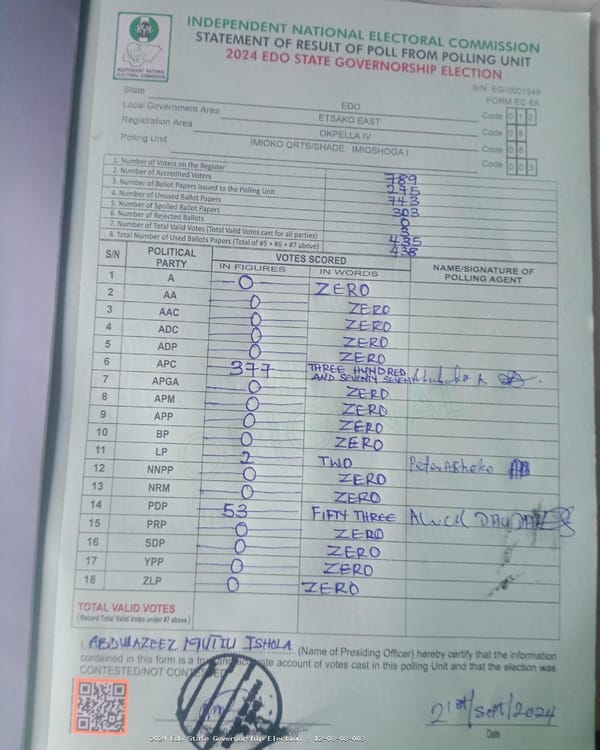 INDEPENDENT NATIONAL ELECTORAL COMMISSION
STATEMENT OF RESULT OF POLL FROM POLLING UNIT
2024 EDO STATE GOVERNORSHIP ELECTION
INEC
INDEPENDENT NATIONAL ELECTORAL COMMISSION
S/N: EG/0001549
FORM EC 8A
State EDO Code 012
Local Government Area ETSAKO EAST Code 08
Registration Area OKPELLA IV Code 08
Polling Unit IMIOKO QRTS/SHADE. IMIOSHOGA I Code 003
1. Number of Voters on the Register 789
2. Number of Accredited Voters
3. Number of Ballot Papers Issued to the Polling Unit 743
4. Number of Unused Ballot Papers 303
5. Number of Spoiled Ballot Papers 0
6. Number of Rejected Ballots
7. Number of Total Valid Votes (Total Valid Votes cast for all parties) 435
8. Total Number of Used Ballots Papers (Total of #5 + #6 + #7 above) 438
S/N POLITICAL PARTY VOTES SCORED NAME/SIGNATURE OF POLLING AGENT
IN FIGURES IN WORDS
1 A 0 ZERO
2 AA 0 ZERO
3 AAC 0 ZERO
4 ADC 0 ZERO
5 ADP 0 ZERO
6 APC 377 THREE HUNDRED AND SEVENTY SEVEN
7 APGA 0 ZERO
8 APM 0 ZERO
9 APP 0 ZERO
10 BP 0 ZERO
11 LP 2 TWO Peter Ashoko
12 NNPP 0 ZERO
13 NRM 0 ZERO
14 PDP 53 FIFTY THREE
15 PRP 0 ZERO
16 SDP 0 ZERO
17 YPP 0 ZERO
18 ZLP 0 ZERO
TOTAL VALID VOTES
(Record Total Valid Votes under #7 above)
I, ABDULAZEEZ ISHOLA (Name of Presiding Officer) hereby certify that the information
contained in this form is a true and accurate account of votes cast in this polling Unit and that the election was
CONTESTED/NOT CONTESTED
21st/Sept/2024
Date
2024 Edo State Governorship Election : 12-08-08-003